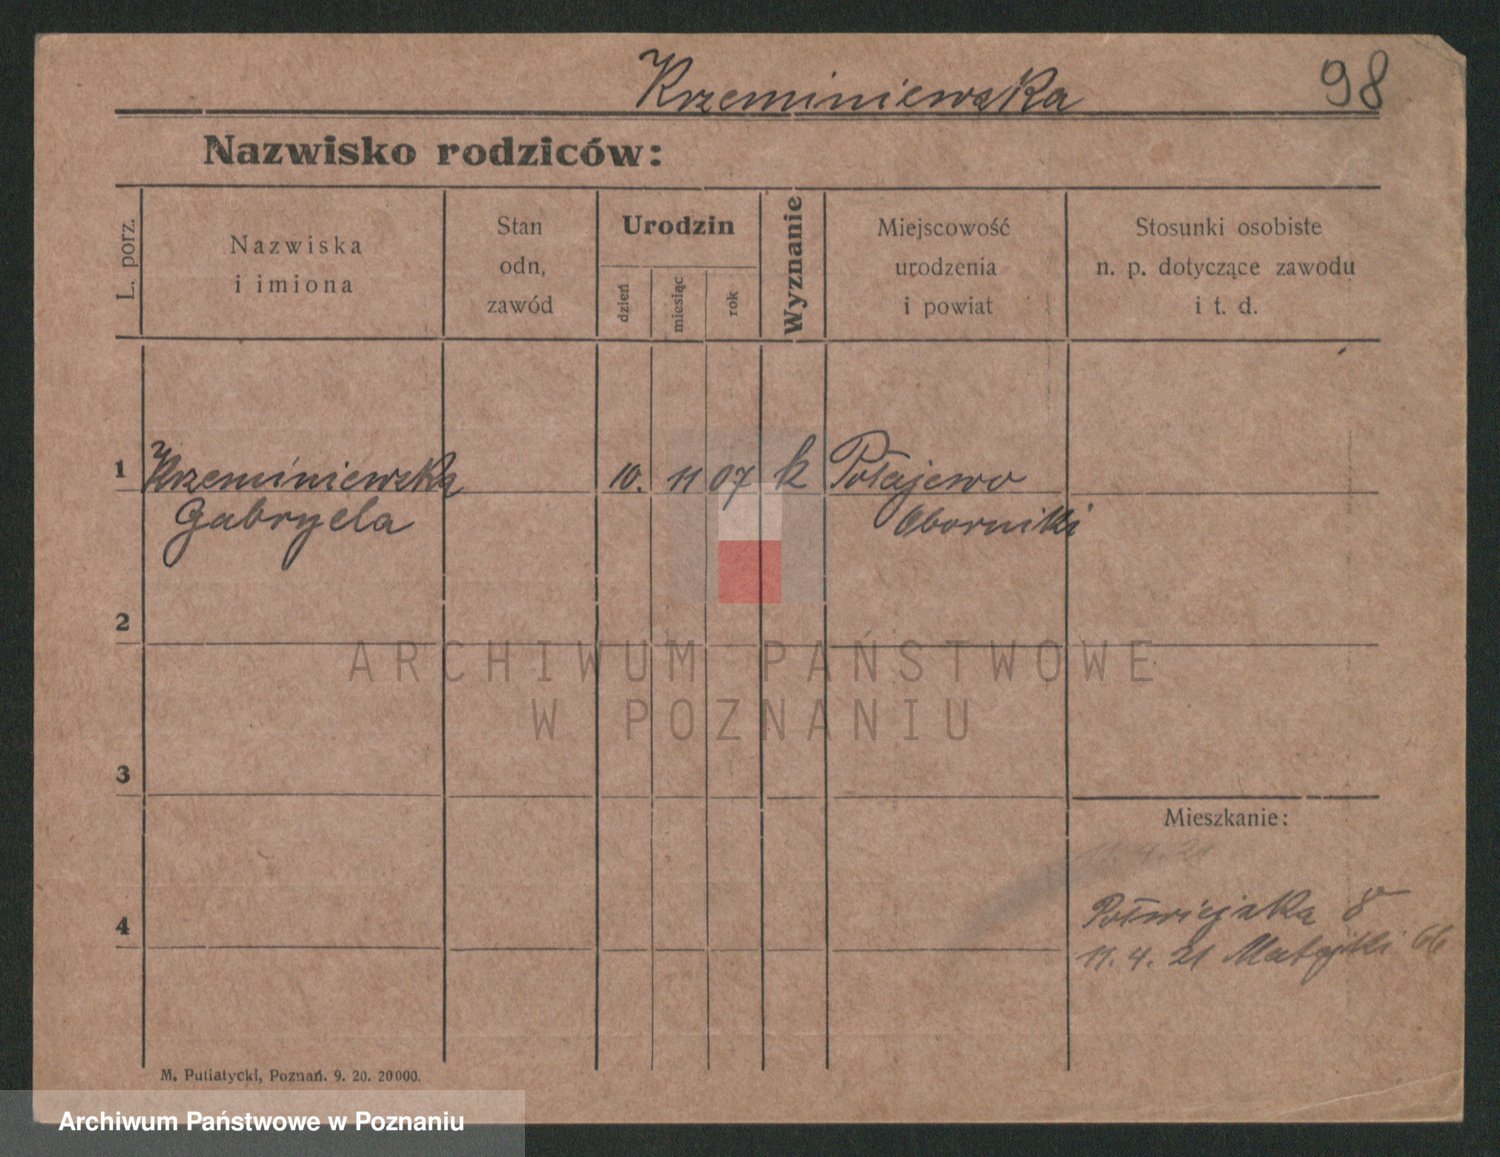 Krzeminiewska 98
Nazwisko rodziców:
L. porz.
Nazwiska
i imiona
Stan
odn,
zawód
Urodzin
dzień
miesiąc
rok
Wyznanie
Miejscowość
urodzenia
i powiat
Stosunki osobiste
n. p. dotyczące zawodu
i t. d.
1 Krzeminiewska 10. 11 07 k Połajewo
Gabryela Oborniki
2
ARCHIWUM PAŃSTWOWE
W POZNANIU
3
Mieszkanie:
11.4.21
4 Półwiejska 8
11.4.21 Matejki 66
M. Putiatycki, Poznań. 9. 20. 20000.
Archiwum Państwowe w Poznaniu